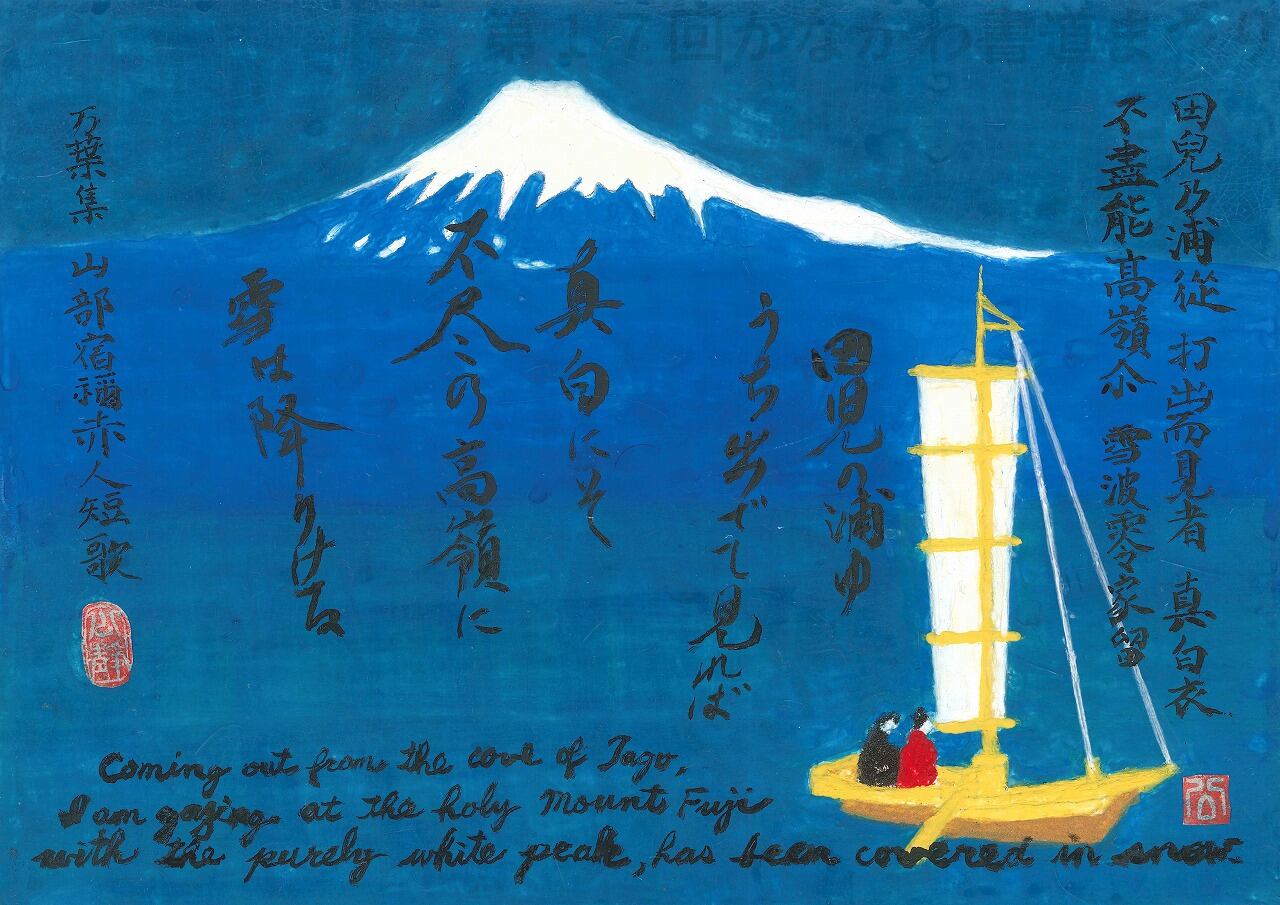 第17回かながわ書道まつり
田兒乃浦從 打出而見者 真白衣
不盡能高嶺尒 雪波零家留
田児の浦ゆ
うち出でて見れば
真白にそ
不尽の高嶺に
雪は降りける
万葉集 山部宿禰赤人短歌
Coming out from the cove of Tago,
I am gazing at the holy Mount Fuji
with the purely white peak, has been covered in snow.